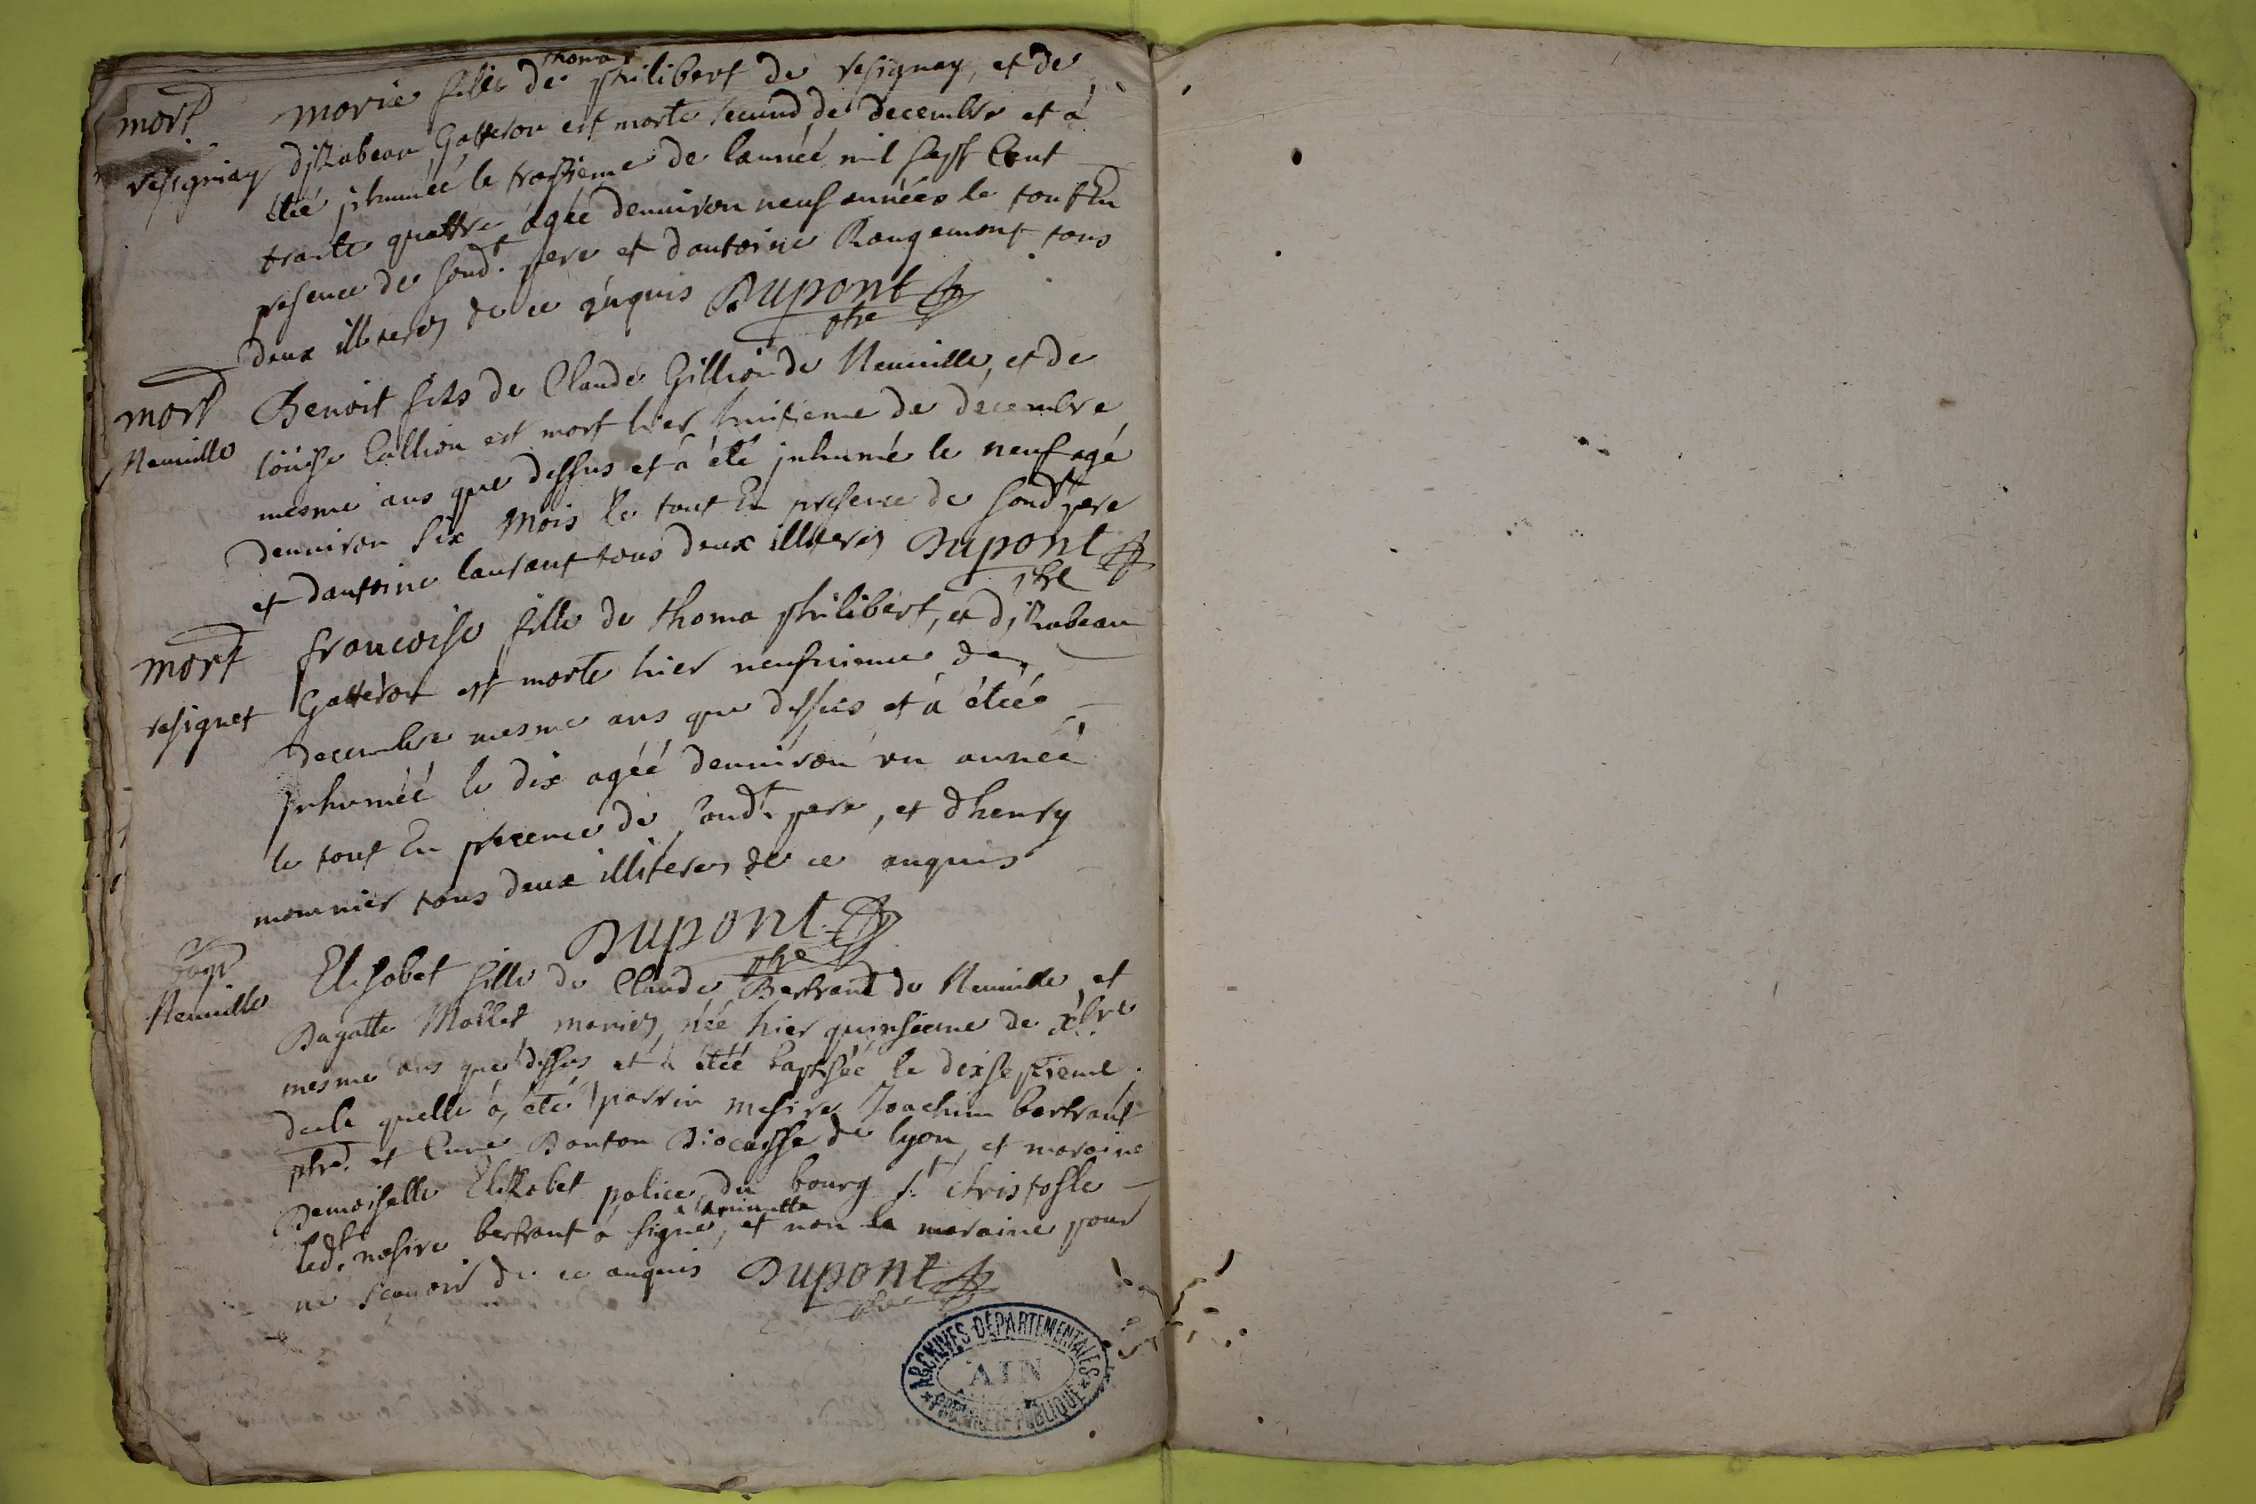 thomas
mort Marie fille de philibert de resignay, et de
resigniay djzabeau Gatteron est morte secund de decembre et à
étéé jnhumééé le troizieme de l'année mil sept Cent
trante quattre àgéé denuiron neuf annéés le tout En
presence de sond.t pere et dantoine Rougemont tous
deux illiteres de ce enquis Dupont
ptre
mort Benoit fils de Claude Gillion de Neuuille, et de
Neuuille loüise Callion est mort hier huitieme de decembre
mesme ans que dessus et à été jnhumé le neuf agé
denuiron six mois le tout En presence de sond.t pere
et dantoine tous deux illiteres Dupont
ptre
mort francoise fille de thoma philibert, et djzabeau
resignet Gatteron est morte hier neufuieme de
decembre mesme ans que dessus et à étéé
jnhuméé le dix agéé denuiron un annéé
le tout En presence de sond.t pere, et dhenry
monnier tous deux illiteres de ce anquis
Dupont
ptre
bapt Elisabet fille de Claude Bertrand de Neuuille et
Neuuille Dagatte Mollet mariés, néé hier quinsieme de xbre
mesme ans que dessus et à étéé baptiséé le dixseptieme
de la quelle à été parrin mesire Joachim bertrant
ptre. et Curé Diocaisse de lyon, et maraine
Demoiselle Elizabet police du bourg s.t christofle
a la minutte
led.t mesire bertrant à signé, et non la maraine pour
ne scauoir de ce anquis Dupont
ptre
ARCHIVES DÉPARTEMENTALES
AIN
PROPRIÉTÉ PUBLIQUE